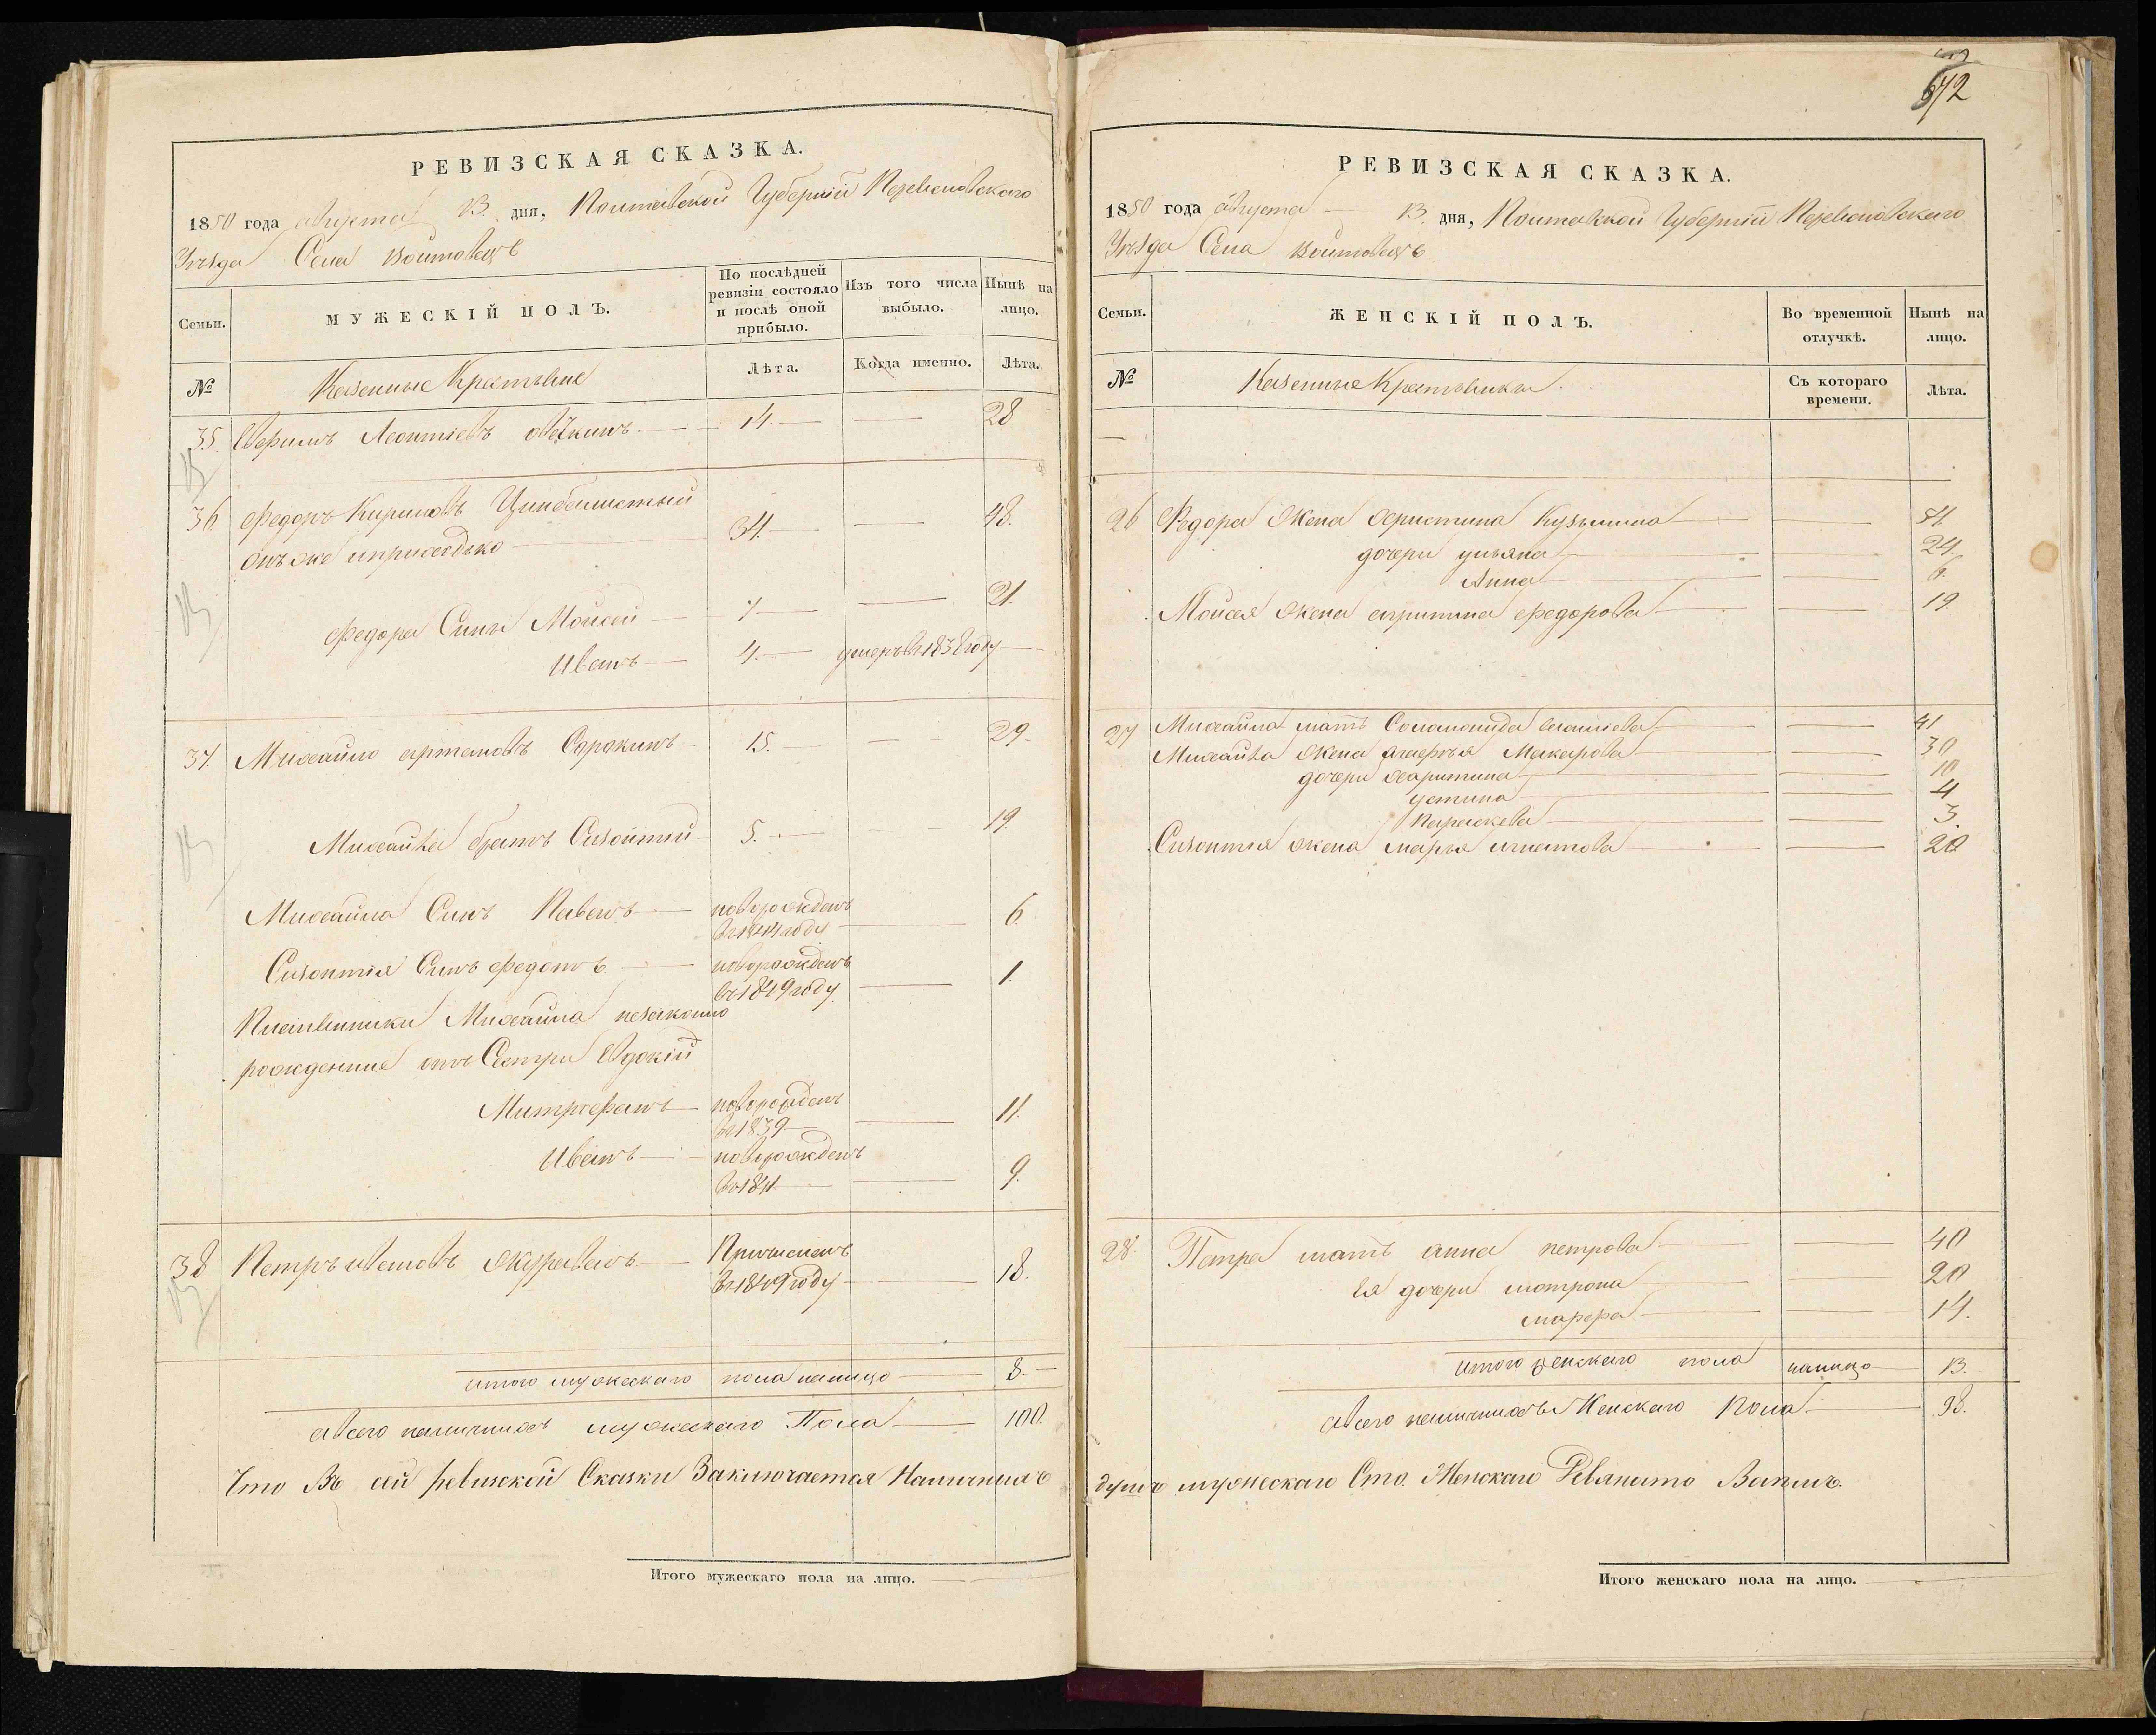 РЕВИЗСКАЯ СКАЗКА.
1850 года августа 13. дня, Полтавской Губерніи Переяславского
Уезда Села Войтовецъ
Семьи.
МУЖЕСКІЙ ПОЛЪ.
По послѣдней ревизіи состояло и послѣ оной прибыло.
Изъ того числа выбыло.
Нынѣ на лицо.
№
Казенные Крестьяне
Лѣта.
Когда именно.
Лѣта.
35. Леонтіевъ 14. 28
36 Федоръ Кириловъ 34. 48.
онъ же
Федора Синъ Моисей 7 21.
Иванъ 4. умеръ в 1838 году
37. Михайло Артемовъ Сорокинъ 15. 29
Михайла братъ Сизонтій 5. 19.
Михайла Синъ Павелъ новорожденъ 6.
въ 1844 году
Сизонтія Синъ Федотъ новорожденъ 1.
въ 1849 году
Племянники Михайла незаконно
рожденние отъ Сестри Евдокіи
Митрофанъ новорожденъ 11.
въ 1839
Иванъ новорожденъ 9.
въ 1841
38 Петръ Ивановъ Журавель Причисленъ 18.
въ 1849 году
итого мужескаго пола налицо 8.
а всего наличнихъ мужескаго Пола 100.
Что Въ сей ревизской Сказки Заключается Наличнихъ
Итого мужескаго пола на лицо.
672
РЕВИЗСКАЯ СКАЗКА.
1850 года августа 13. дня, Полтавской Губерніи Переяславского
Уезда Села Войтовецъ
Семьи.
ЖЕНСКІЙ ПОЛЪ.
Во временной отлучкѣ.
Нынѣ на лицо.
№
Казенные Крестьянки
Съ котораго времени.
Лѣта.
26 Федора Жена Христина Кузьмина
дочери ульяна 24.
Анна 6.
Мойсея Жена Федорова 19.
27 Михайла мать Соломонида 41
Михайла Жена агафья Макарова 30
дочери Харитина 10
устина 4
Параскева 3.
Сизонтія жена марья игнатова 20
28. Петра мать анна петрова 40
ея дочери мотрона 20
марфа 14.
итого женскаго пола налицо 13.
а всего наличнихъ Женскаго Пола 98.
душъ мужескаго Сто. Женскаго Девяносто
Итого женскаго пола на лицо.